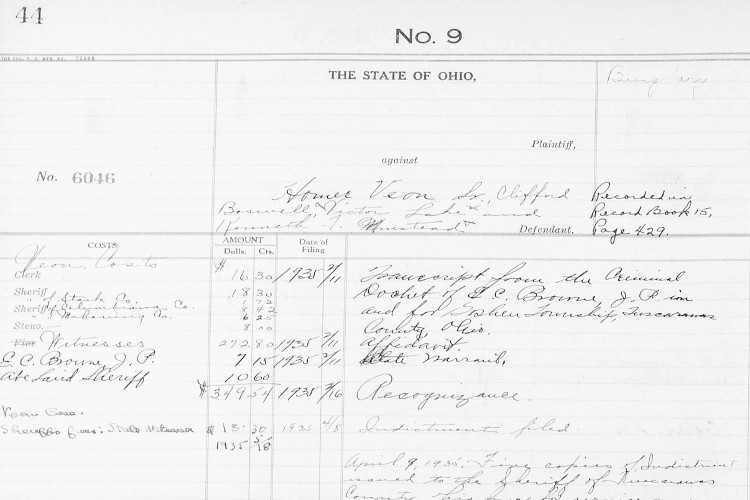 44
No. 9
THE STATE OF OHIO,
Burglary
Plaintiff,
against
No. 6046
Homer Veon Sr, Clifford
Boswell, Victor Lake and
Kenneth
Defendant.
Recorded in
Record Book 15,
Page 429.
COSTS
AMOUNT
Dolls. Cts.
Date of
Filing
Veon Costs
Clerk $ 16 30 1935 2/11 Transcript from the Criminal
Sheriff 18 30 Docket of E. C. Browne, J. P. in
" of Stark Co. 1 72
Sheriff " Columbiana Co. 8 42 and for Goshen Township, Tuscarawas
" Mahoning Co. 6 25
Steno. 8 00 County, Ohio.
Fine Witnesses 272 80 1935 2/11 Affidavit.
E. C. Browne, J. P. 7 15 1935 2/11 State Warrant.
Abe Laird Sheriff 10 60
$ 349 54 1935 2/16 Recognizance.
Veon Case.
Sheriffs fees: State Witnesses $ 13 30 1935 4/8 Indictment filed.
1935 5/18
April 9, 1935. Four copies of Indictment
issued to the Sheriff of Tuscarawas
County